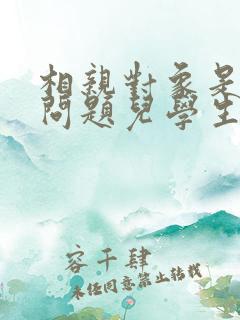 相親對象是
問題兒學生
容千肆
未經同意禁止轉載